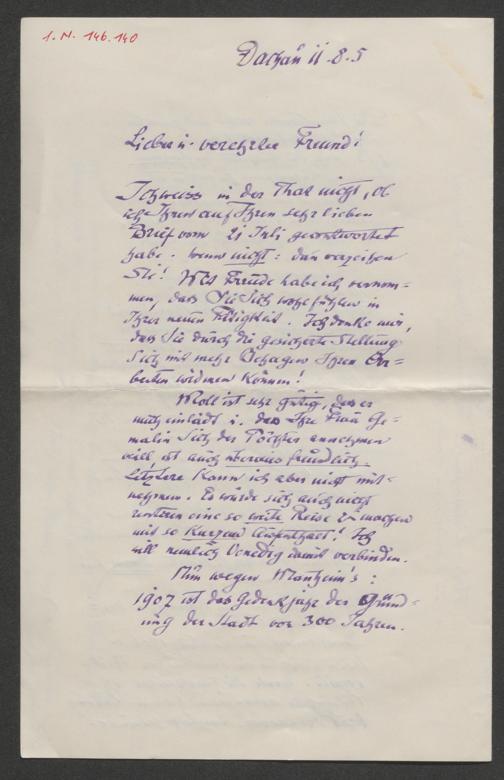 I. N. 146.140
Dachau 11.8.5
Lieber u. verehrter Freund!
Ich weiss in der That nicht, ob
ich Ihnen auf Ihren sehr lieben
Brief vom 21 Juli geantwortet
habe. wenn nicht: dan verzeihen
Sie! Mit Freude habe ich vernom=
men, dass Sie Sich wohl fühlen in
Ihrer neuen Tätigkeit. Ich denke mir,
dass Sie durch die gesicherte Stellung
Sich mit mehr Behagen Ihren Ar=
beiten widmen können!
Moll ist sehr gütig, dass er
mich einladt u. dass Ihre Frau Ge=
malin Sich der Töchter annehmen
will ist auch überaus freundlich.
Letztere kann ich aber nicht mit=
nehmen. Es würde sich auch nicht
rentiren eine so weite Reise zu machen
mit so kurzem Aufenthalt! Ich
will nemlich Venedig damit verbinden.
Nun wegen Manheim's:
1907 ist das Gedenkjahr der Gründ=
ung der Stadt vor 300 Jahren.